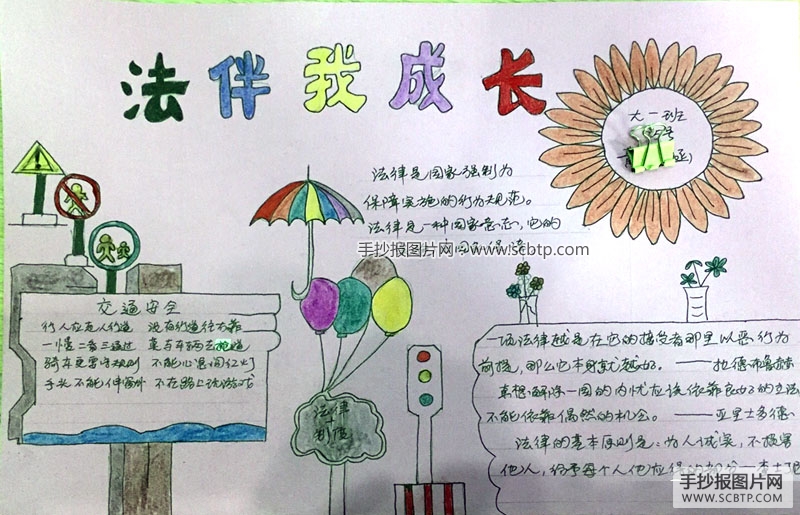 法伴我成长
大一班
法律是国家强制力
保障实施的行为规范。
法律是一种国家意志,它的
手抄报图片网·www.scbtp.com
交通安全
行人应走人行道 没有行道往右靠
一慢二看三通过 莫与车辆去抢道
骑车更需守规则 不能心急闯红灯
手头不能伸窗外 不在路上玩游戏
法律
+
制度
一项法律越是在它的接受者那里以恶行为
前提,那么它本身就越好。
真想解除一国的内忧应该依靠良好的立法
不能依靠偶然的机会。——亚里士多德
法律的基本原则是:为人诚实,不损害
他人,给予每个人他应得的部分
手抄报图片网
WWW.SCBTP.COM